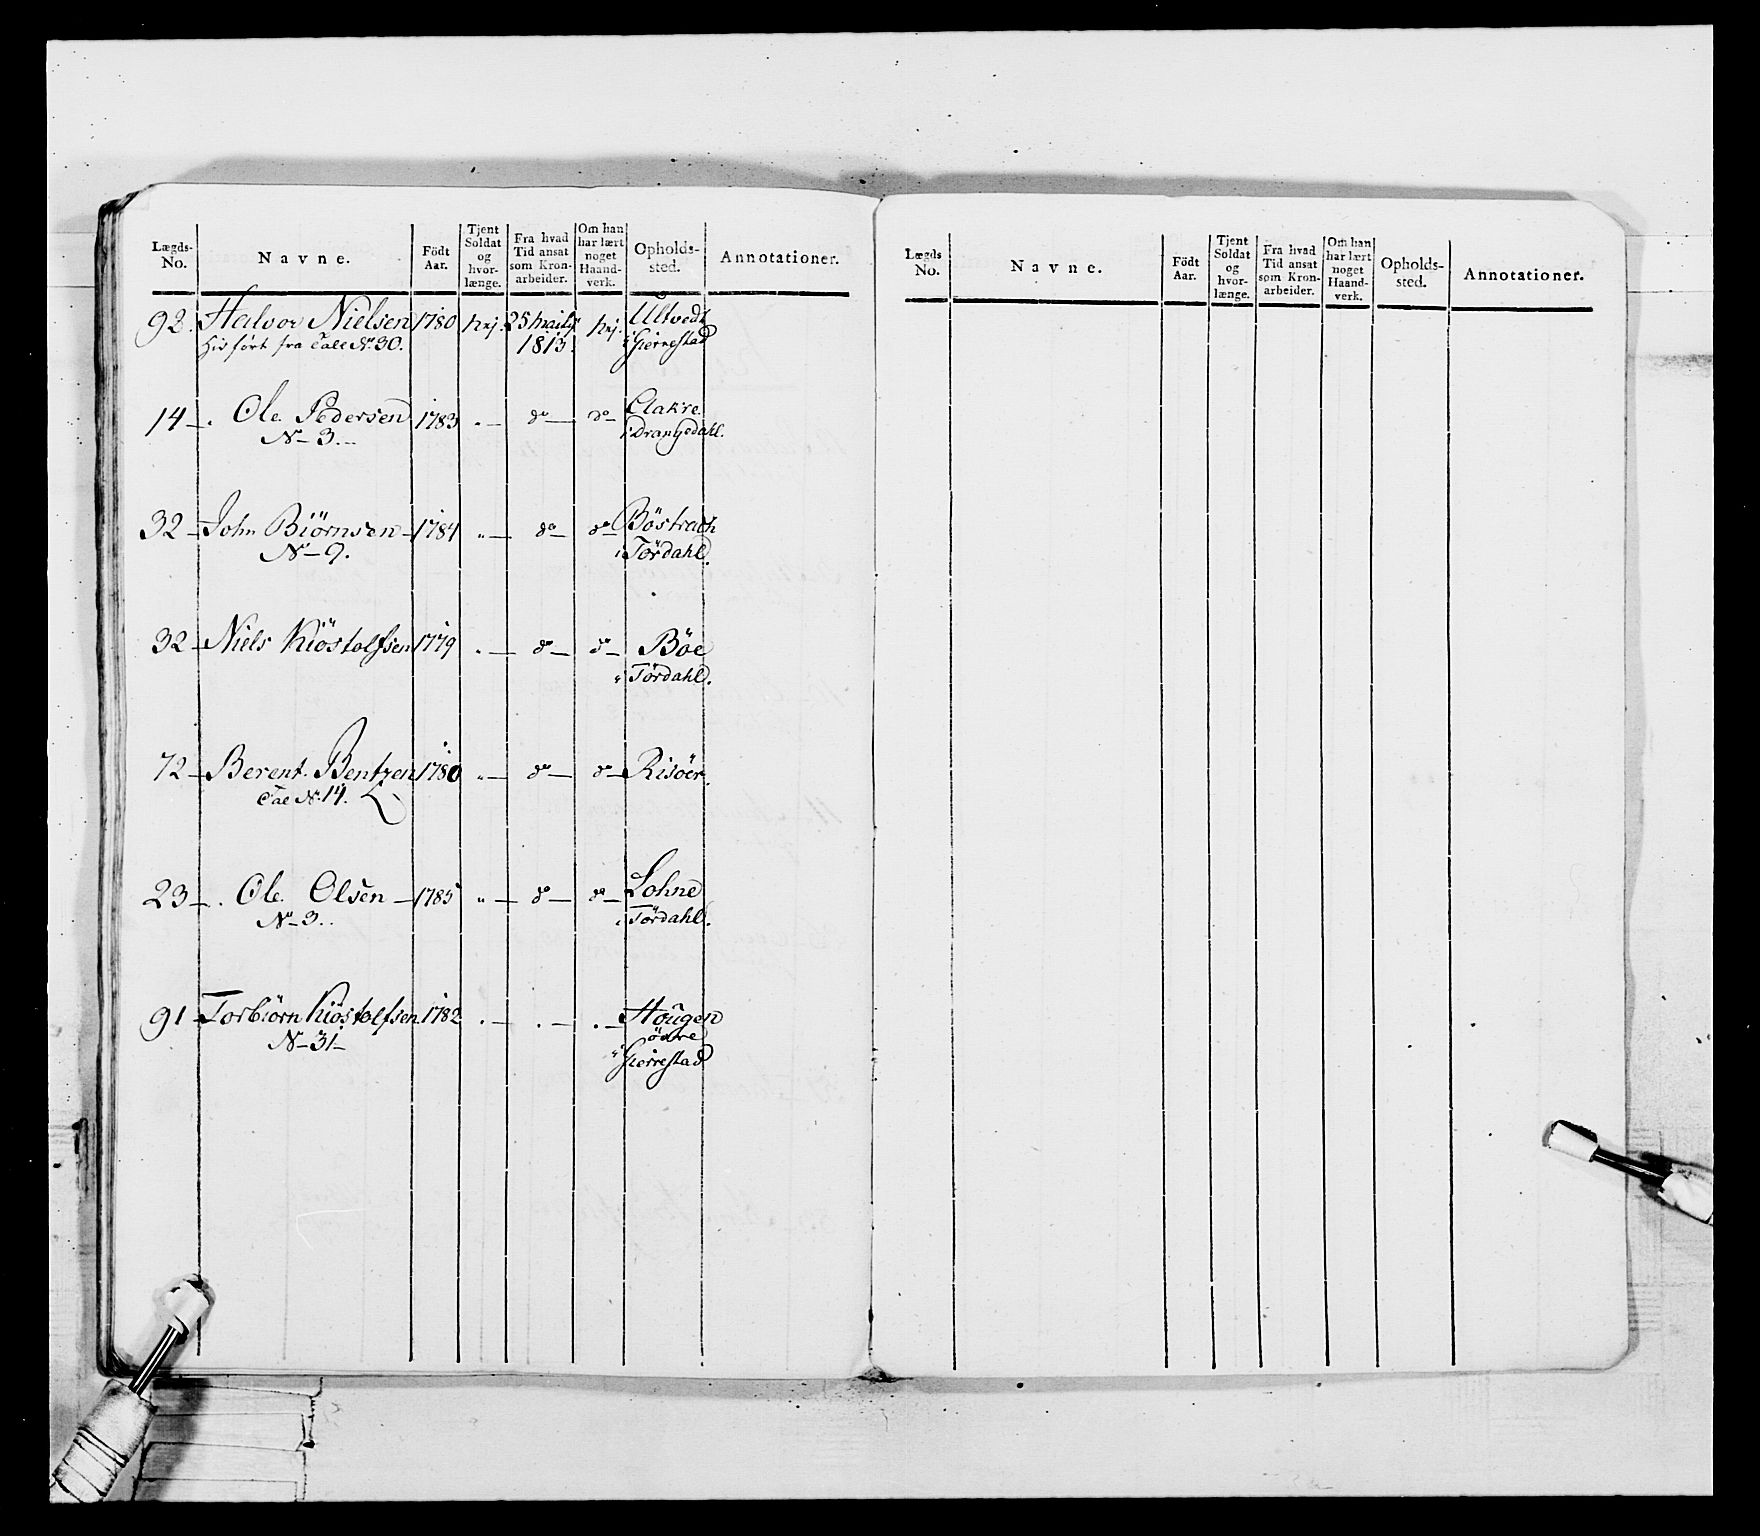 Lægds-No. Navne. Födt Aar. Tjent Soldat og hvor-længe. Fra hvad Tid ansat som Kron-arbeider. Om han har lært noget Haand-verk. Opholds-sted. Annotationer.
92. Halvor Nielsen 1780 nej. 25 1813. nej. Ultvedt
fört fra No. 30. i Gierrestad
14 Ole Pedersen 1783 " do do
No 3. i Drangedahl.
32 John Biörnsen 1784 " do do Böstrach
No 9. i Tördahl.
32 Niels Kiöstolfsen 1779 " do do Böe
" Tördahl.
72 Berent Bentzen 1780 " do do Risöer.
No. 14.
23 Ole Olsen 1785 " do do Lohne
No 3. i Tördahl.
91 Torbiörn Kiöstolfsen 1782 " " " Hougen
No 31 övre
" Gierrestad
Lægds No. Navne. Födt Aar. Tjent Soldat og hvor-længe. Fra hvad Tid ansat som Kron-arbeider. Om han har lært noget Haand-verk. Opholds-sted. Annotationer.